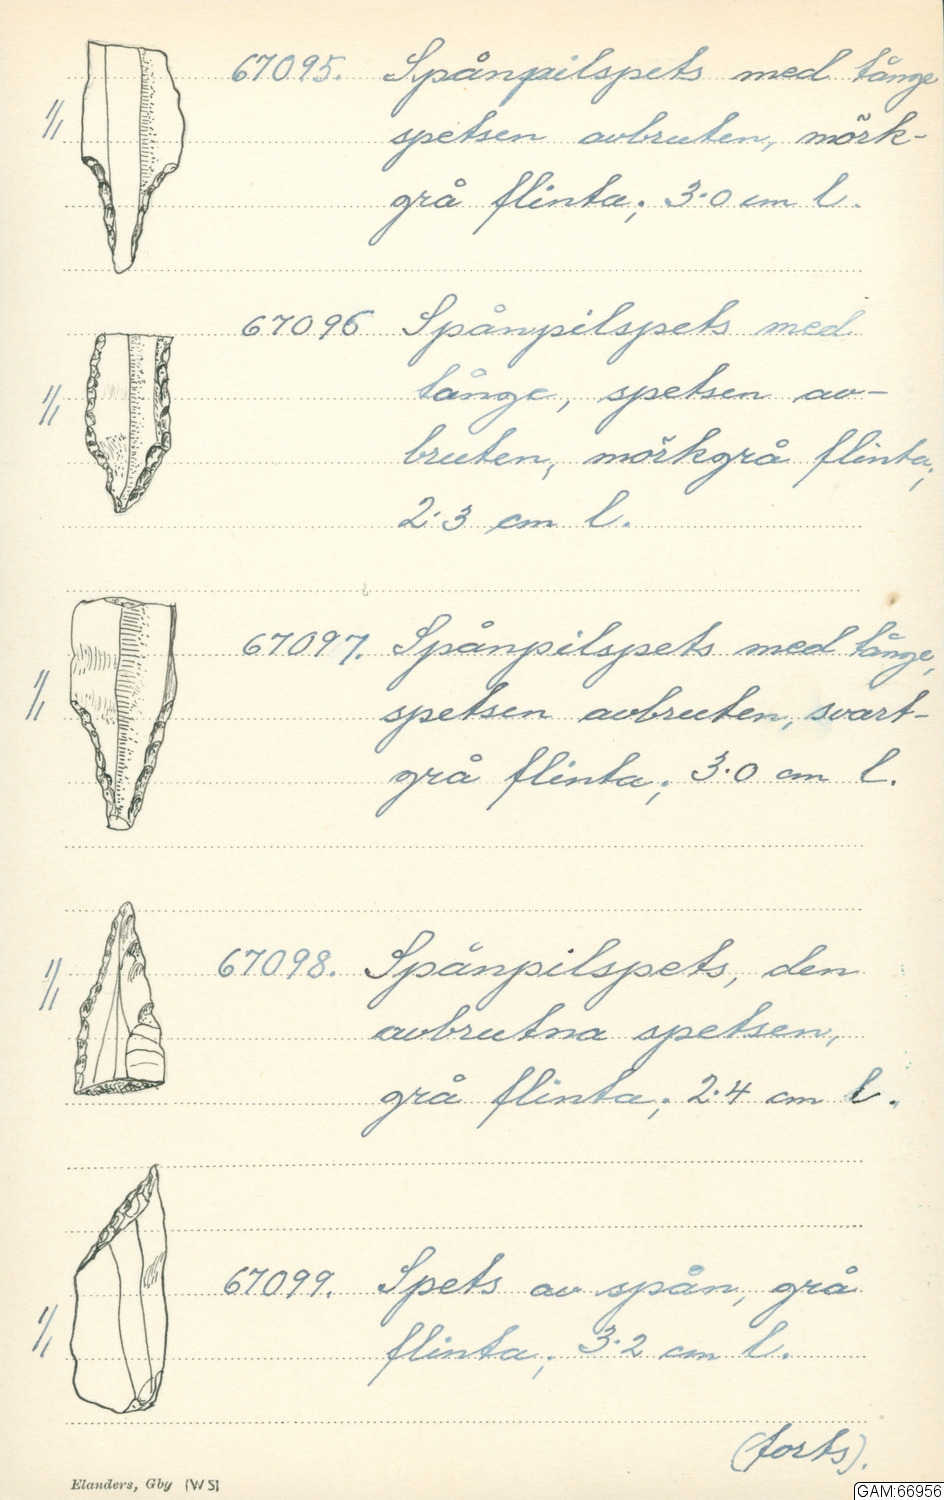 1/1 67095. Spånpilspets med tånge
spetsen avbruten, mörk-
grå flinta; 3.0 cm l.
67096 Spånpilspets med
1/1 tånge, spetsen av-
bruten, mörkgrå flinta;
2.3 cm l.
67097. Spånpilspets med tånge,
1/1 spetsen avbruten, svart-
grå flinta; 3.0 cm l.
1/1 67098. Spånpilspets, den
avbrutna spetsen,
grå flinta; 2.4 cm l.
67099. Spets av spån, grå
1/1 flinta; 3.2 cm l.
(forts).
Elanders, Gby (WS)
GAM:66956